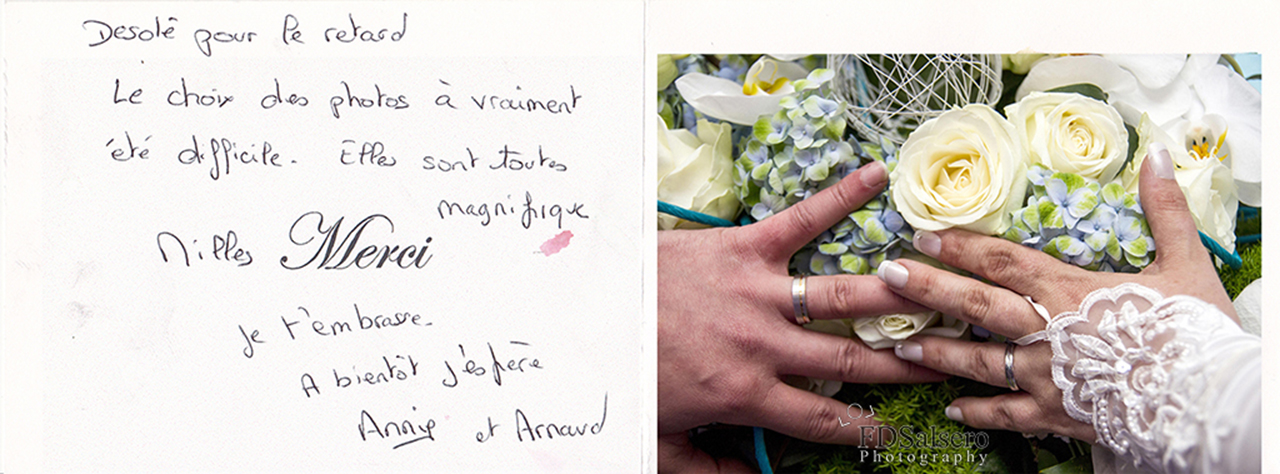 Desolé pour le retard
Le choix des photos à vraiment
été difficile. Elles sont toutes
magnifique
Milles Merci
je t'embrasse.
A bientôt j'éspère
Annie et Arnaud
FDSalsero
Photography